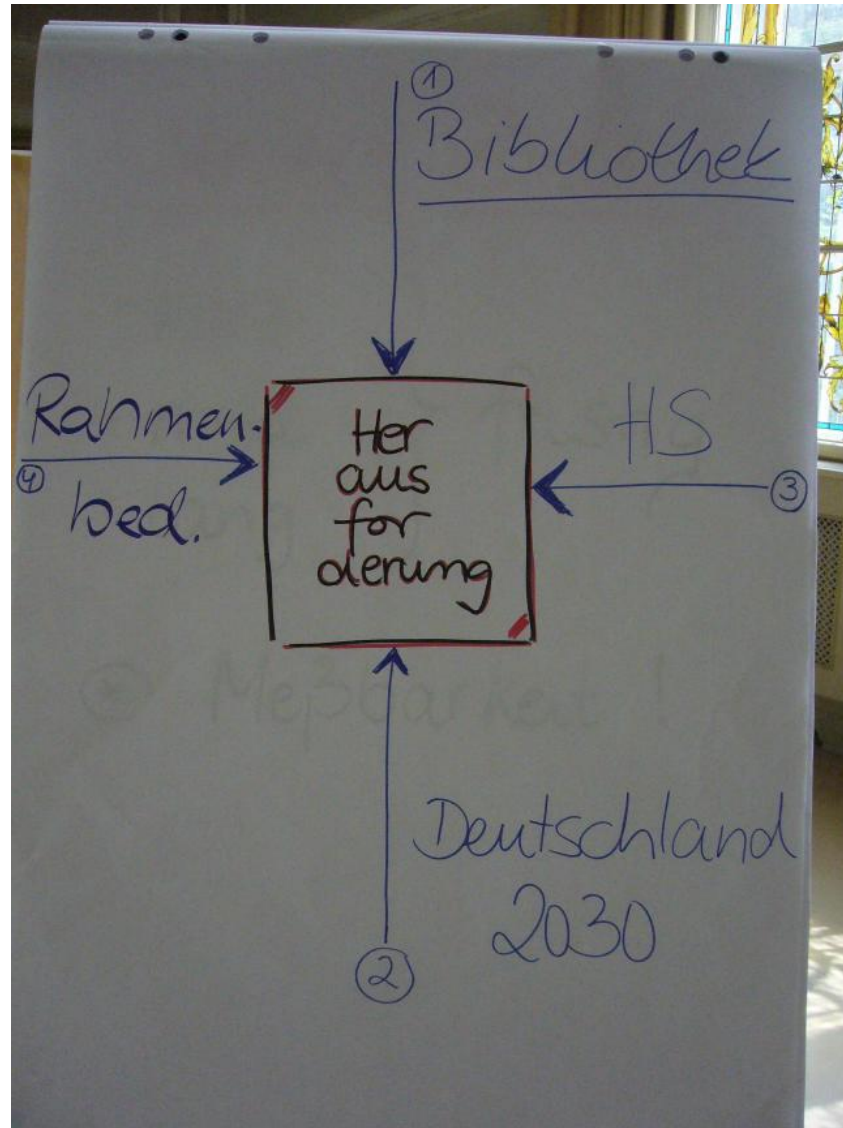 ①
Bibliothek
Rahmen-
④
bed.
Her
aus
for
derung
HS
③
Meßbarkeit !
Deutschland
2030
②